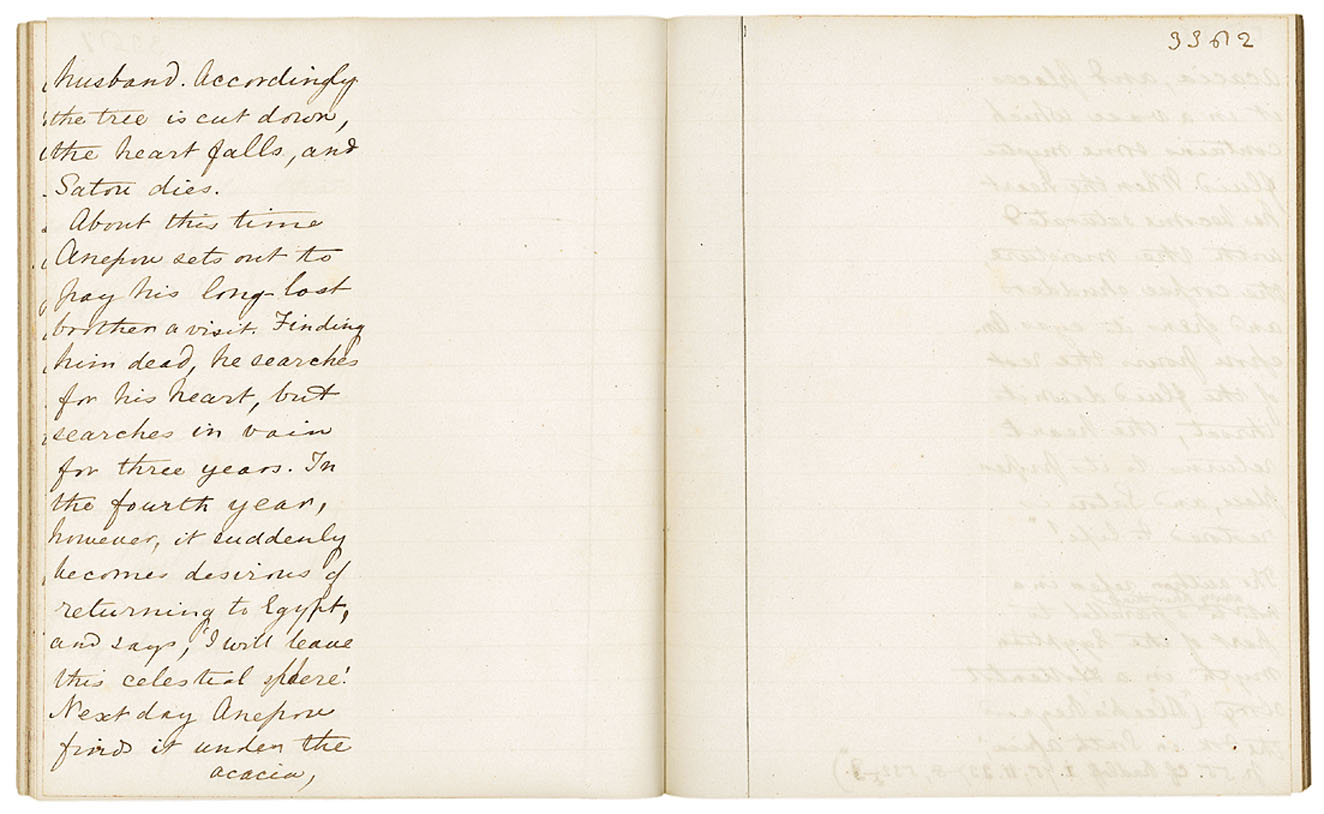 husband. Accordingly
the tree is cut down,
the heart falls, and
Satou dies.
About this time
Anepou sets out to
pay his long-lost
brother a visit. Finding
him dead, he searches
for his heart, but
searches in vain
for three years. In
the fourth year,
however, it suddenly
becomes desirous of
returning to Egypt,
and says, 'I will leave
this celestial sphere.'
Next day Anepou
finds it under the
acacia,
3362